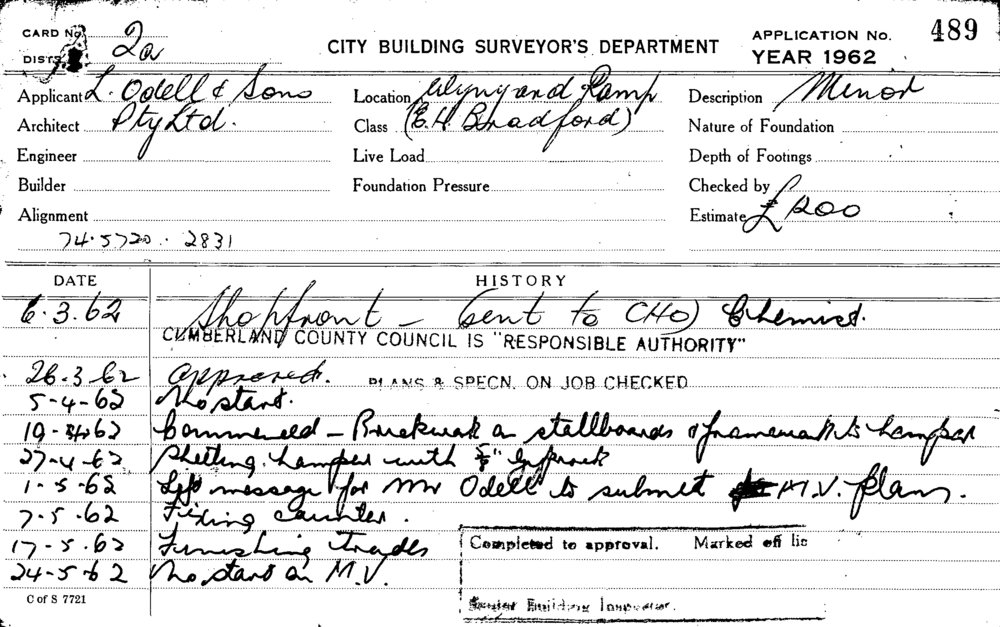 CARD No. 2a
DIST.
CITY BUILDING SURVEYOR'S DEPARTMENT
APPLICATION No. 489
YEAR 1962
Applicant L. Odell & Sons
Location Wynyard Ramp
Description Minor
Architect Pty Ltd.
Class (E.H. Bradford)
Nature of Foundation
Engineer
Live Load
Depth of Footings
Builder
Foundation Pressure
Checked by
Alignment
Estimate £200
74.5720. 2831
DATE
HISTORY
6.3.62 Shopfront - (sent to CHO) Chemist.
CUMBERLAND COUNTY COUNCIL IS "RESPONSIBLE AUTHORITY"
26.3.62 Approved. PLANS & SPECN. ON JOB CHECKED
5-4-62 No start.
19-4-62 Commenced - Brickwork on stallboards & framework to hamper
27-4-62 Sheeting hamper with gyprock
1-5-62 Left message for Mr Odell to submit M.V. plans.
7-5-62 Fixing counter.
17-5-62 Finishing trades
Completed to approval. Marked off lic
24-5-62 No start on M.V.
C of S 7721
Senior Building Inspector.